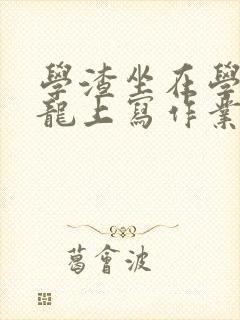 學渣坐在學
龍上寫作業
葛會波